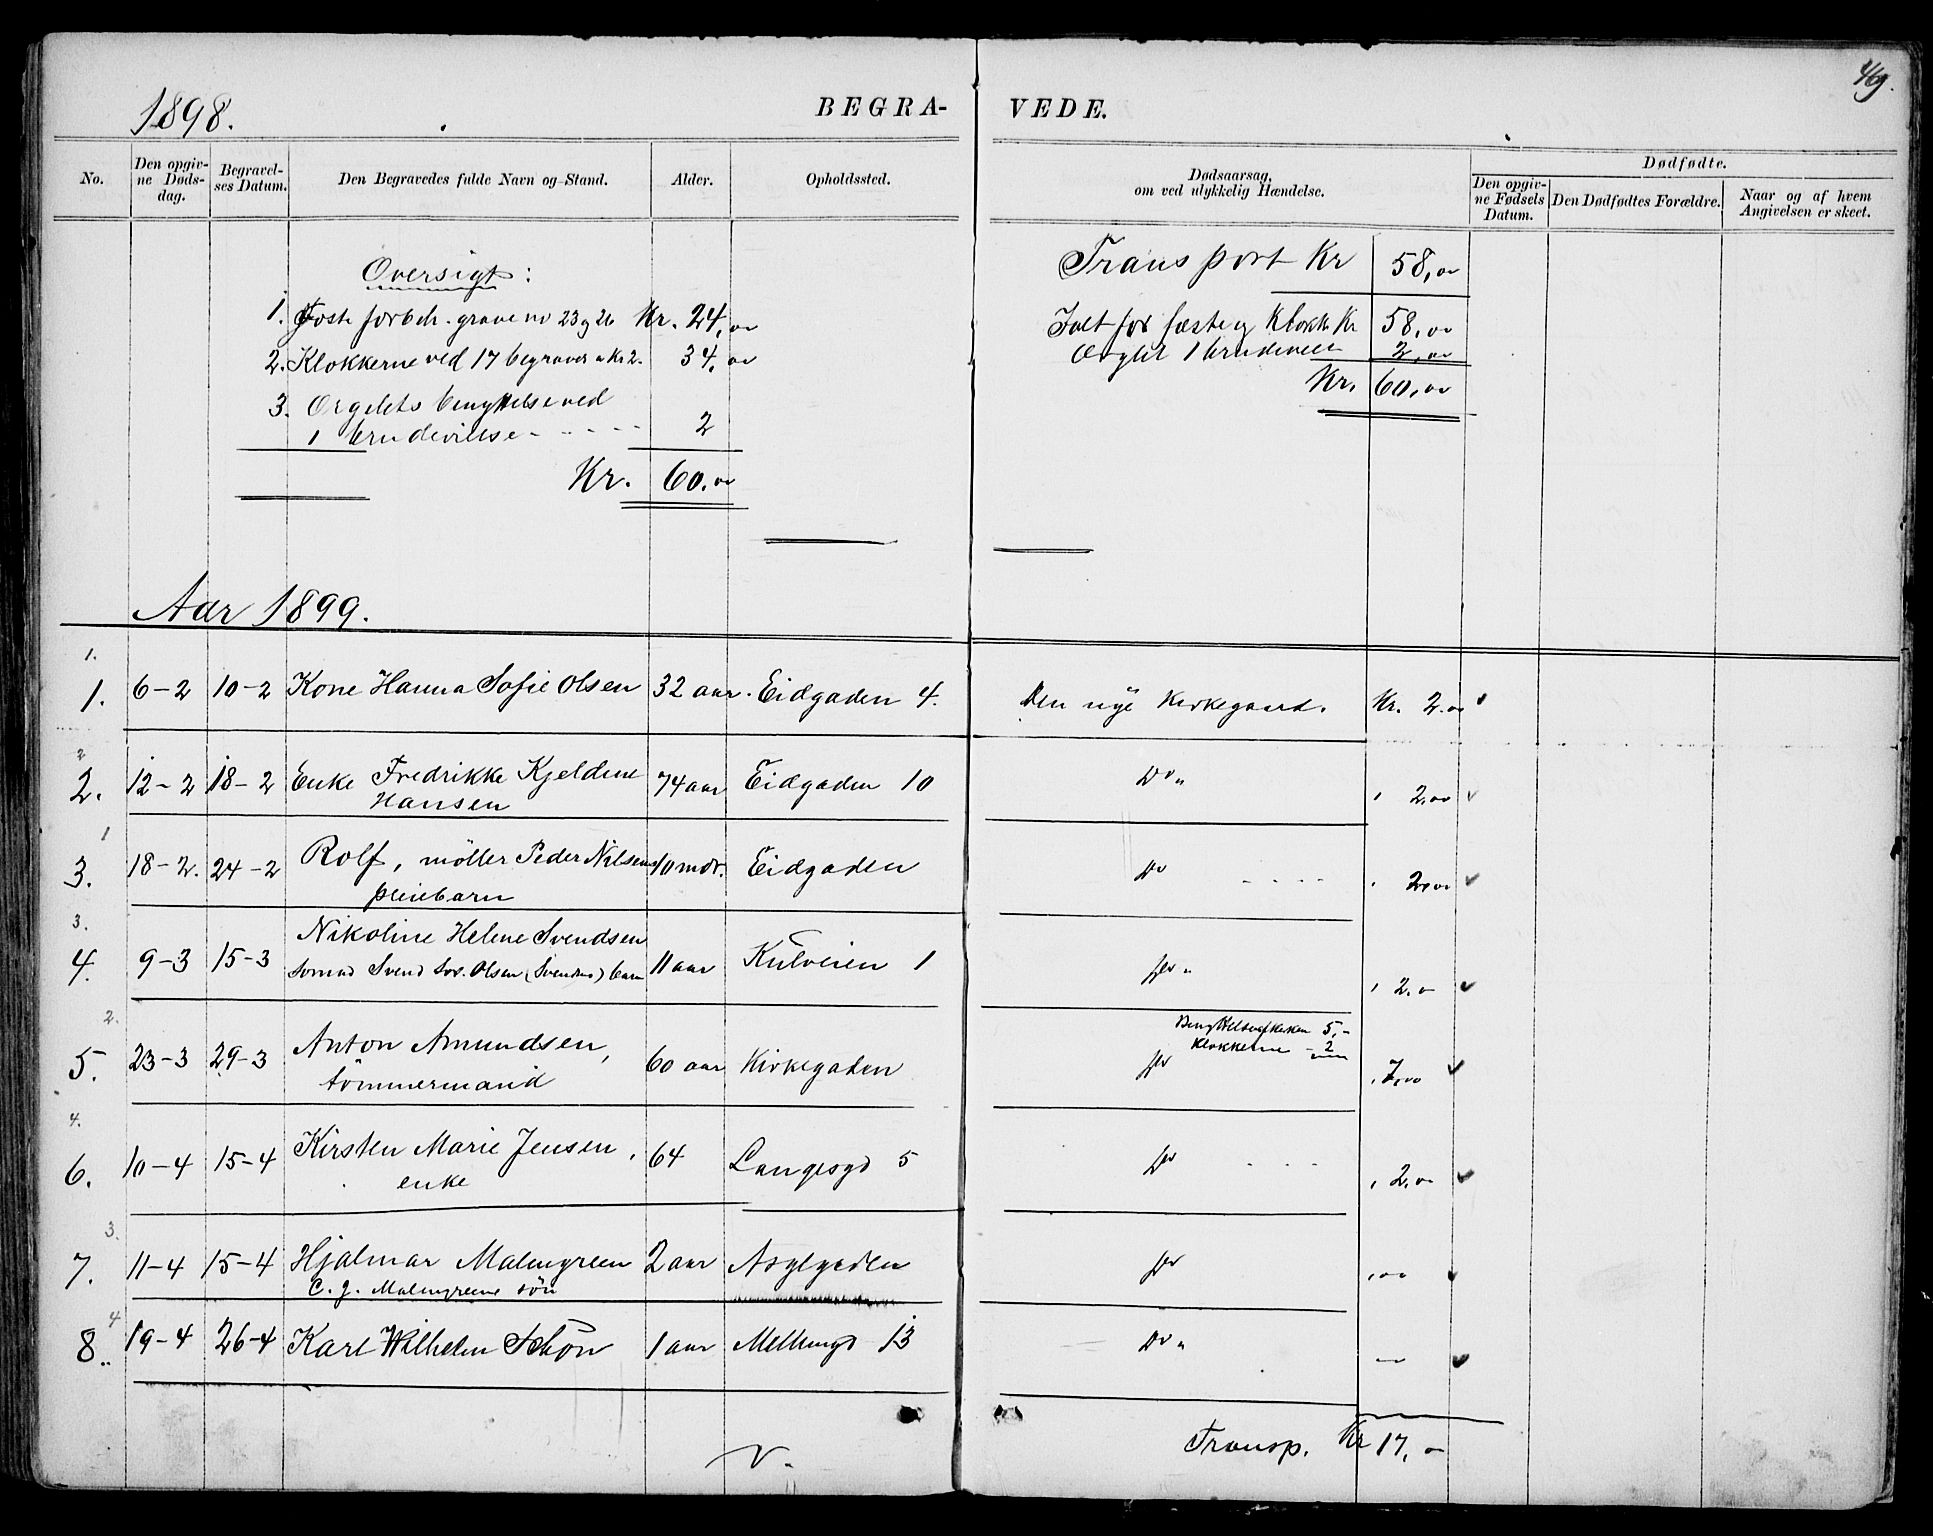 1898.
BEGRA-
VEDE.
49.
No.
Den opgiv-
ne Døds-
dag.
Begravel-
ses Datum.
Den Begravedes fulde Navn og Stand.
Alder.
Opholdssted.
Dødsaarsag,
om ved ulykkelig Hændelse.
Dødfødte.
Den opgiv-
ne Fødsels
Datum.
Den Dødfødtes Forældre.
Naar og af hvem
Angivelsen er skeet.
Oversigt:
1. grave no 23 og 26 Kr. 24,oo
2. Klokkerne ved 17 begravs a Kr 2. 34,oo
3. Orgelets benyttelse ved
1 brudevielse - - - - - 2
Kr. 60.oo
Transport Kr 58,oo
Ialt for fæste og Klokk Kr 58,oo
1 brudeviels 2,oo
Kr. 60,oo
Aar 1899.
1.
1. 6-2 10-2 Kone Hanna Sofie Olsen 32 aar. Eidgaden 4. Den nye Kirkegaard. Kr. 2.oo
2
2. 12-2 18-2 Enke Fredrikke Kjeldine 74 aar Eidgaden 10 Do " 2.oo
Hansen
1
3. 18-2. 24-2 Rolf, möller Peder Nilsens 10 mdr. Eidgaden Do - - - - 2,oo
pleiebarn
3.
4. 9-3 15-3 Nikoline Helene Svendsen 11 aar Kulveien 1 Do " 2.o
Svend Olsen (Svendsen) barn
2.
5. 23-3 29-3 Anton Amundsen, 60 aar Kirkegaden Do 7,oo
tömmermand
5,-
Klokkerne - 2
4.
6. 10-4 15-4 Kirsten Marie Jensen, 64 Langesgd 5 Do - - - 2,oo
enke
3.
7. 11-4 15-4 Hjalmar Malmgreen 2 aar Asylgaden Do ,oo
C. J. Malmgreens sön
4
8.. 19-4 26-4 Karl Wilhelm Schön 1 aar Mellemgd 13 Do " —
Transp. Kr 17,-